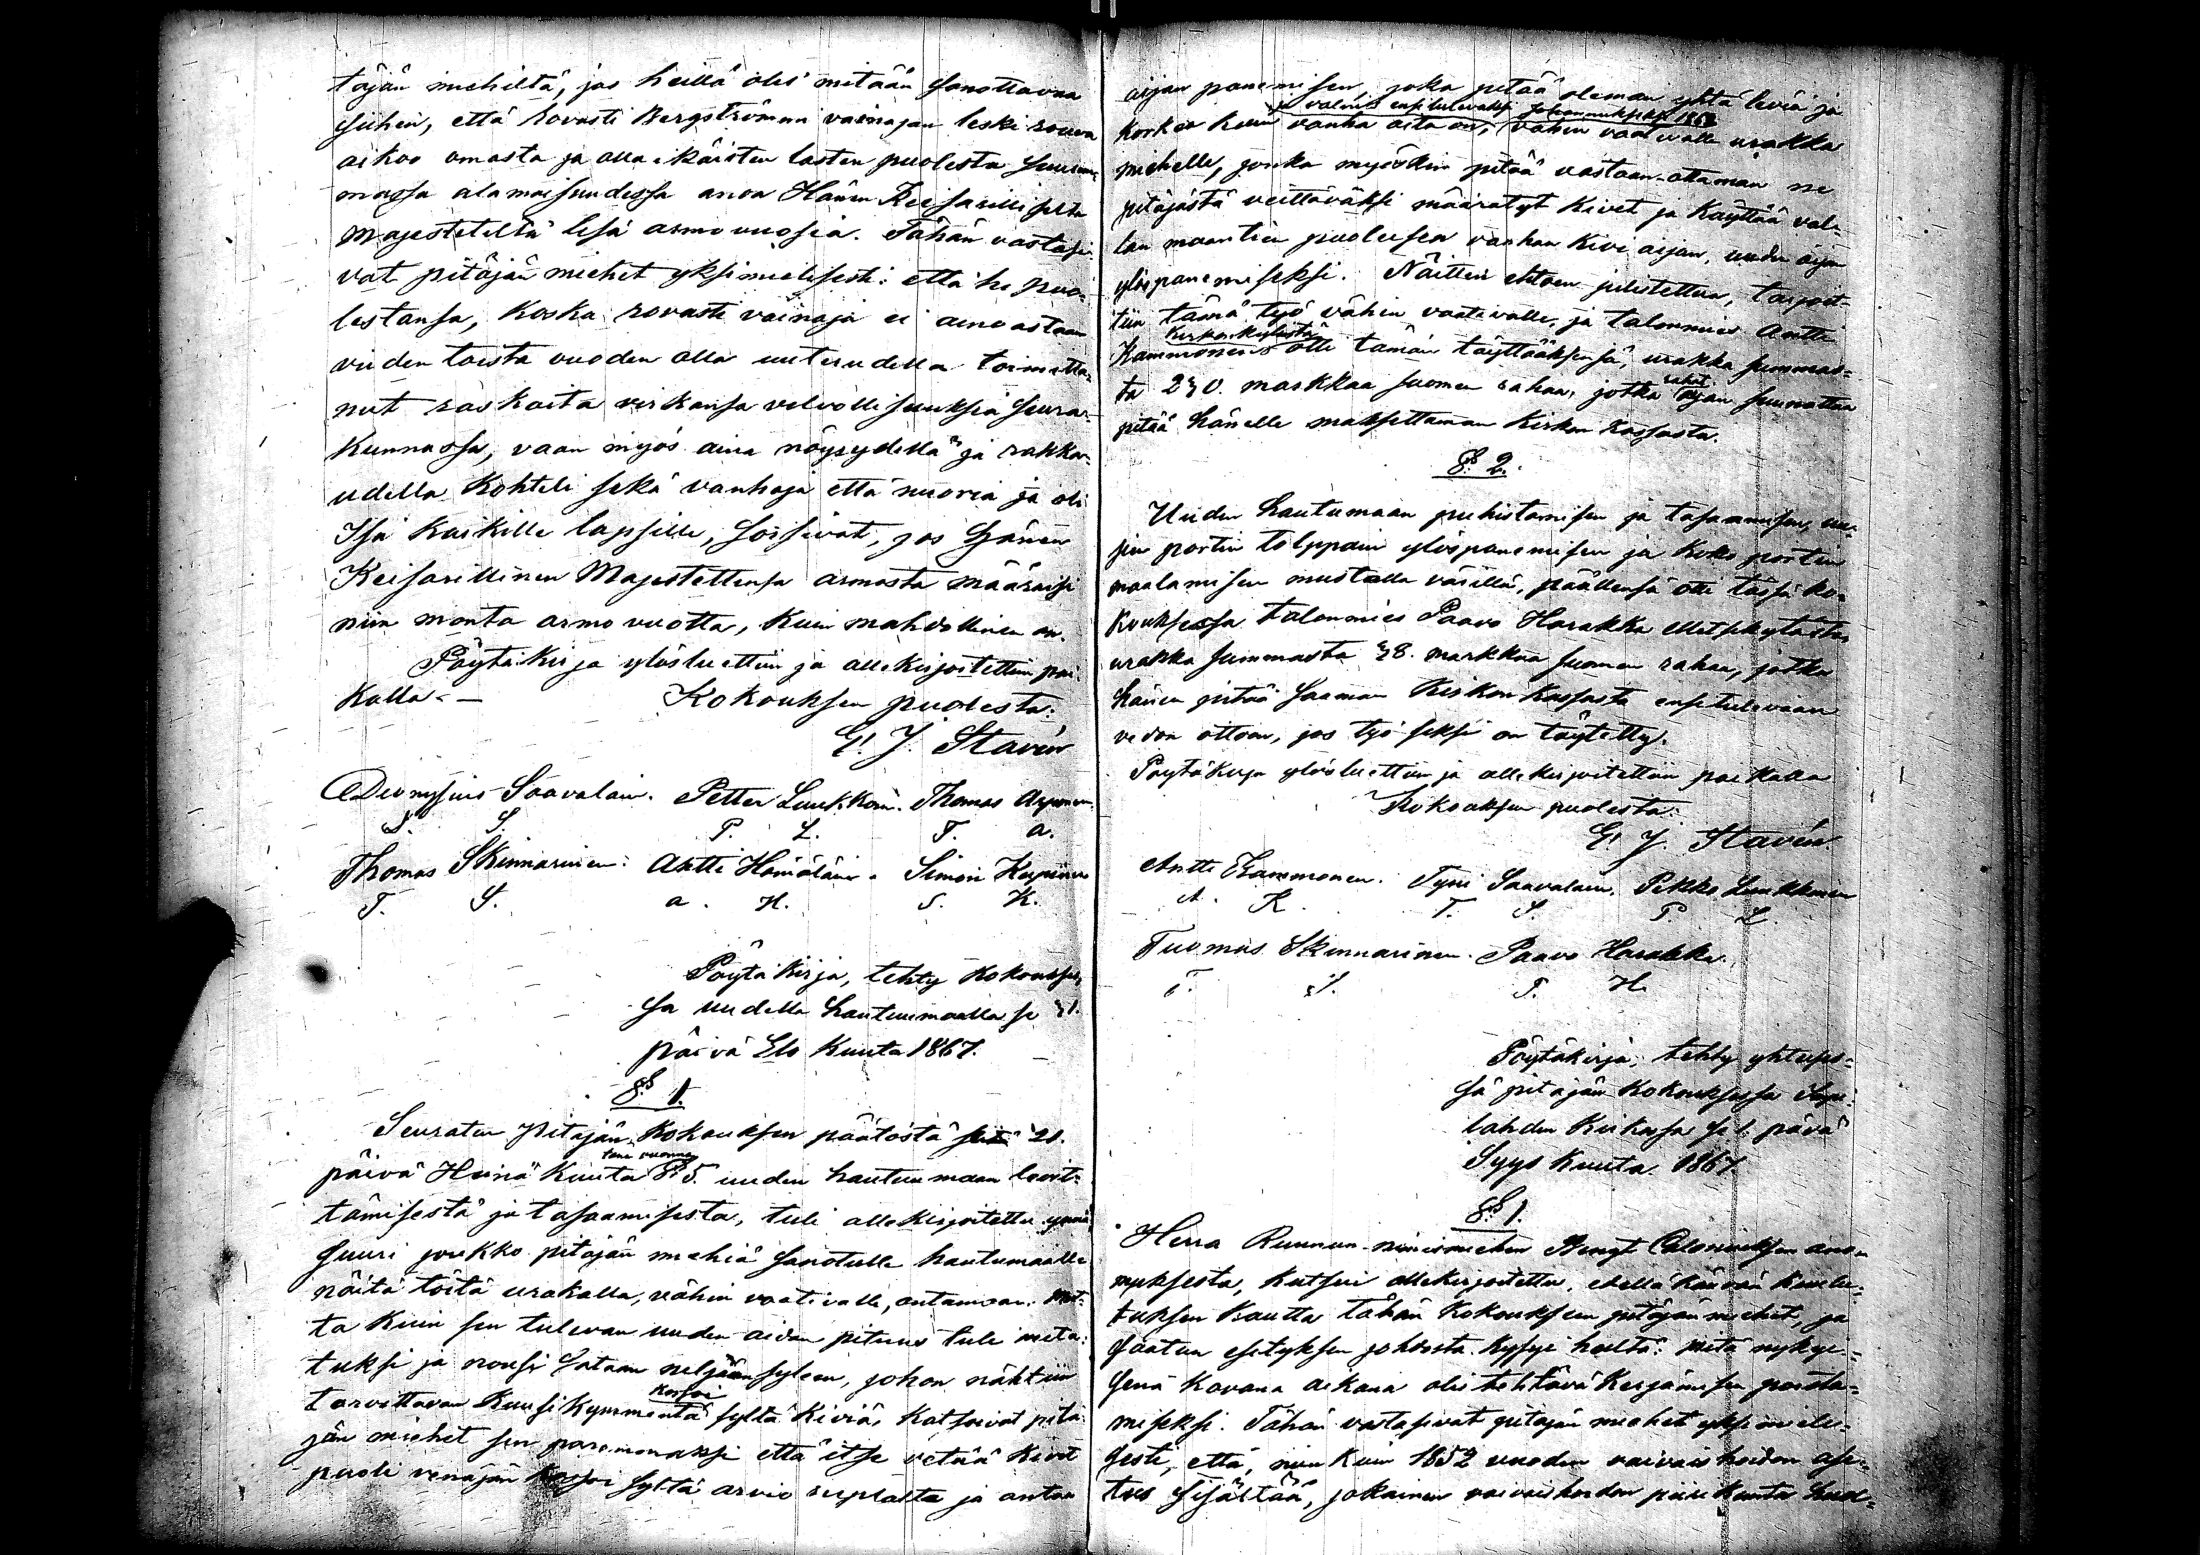 täjän miehiltä, jos heillä olis mitään sanottavaa
siihen, että Rovasti Bergströmin vainajan leski rouva
aikoo omasta ja alla ikäisten lasten puolesta suurim-
massa alamaisuudessa anoa Hänen Keisarilliselta
Majestetiltä lisä armovuosia. Tähän vastasi-
vat pitäjän miehet yksimielisesti: että he puo-
lestansa, koska rovasti vainaja ei ainoastaan
viiden toista vuoden alla uuteruudella toimitta-
nut raskaita virkansa velvollisuuksia seura-
kunnassa, vaan myös aina nöyrydellä ja rakka-
udella kohteli sekä vanhoja että nuoria ja oli
Isä kaikille lapsille, soisivat, jos Hänen
Keisarillinen Majestettensa armosta määräisi
niin monta armo vuotta, kuin mahdollinen on.
Pöytäkirja ylösluettiin ja allekirjoitettiin pai-
kalla. — Kokouksen puolesta:
G. J. Stavén
Dionysius Saavalain. Petter Luukkain. Thomas
D. S. P. L. T. A.
Thomas Skinnarinen. Antti Hämäläin. Simon Kupiinen
T. S. A. H. S. K.
Pöytäkirja, tehty kokoukses-
sa uudella hautuumaalla se 31.
päivä Elo kuuta 1867.
§ 1.
Seuraten pitäjän kokouksen päätöstä 21.
tänä vuonna
päivä Heinä kuuta § 5. uuden hautuu maan levit-
tämisestä ja tasaamisesta, tuli allekirjoitettu ynnä
suuri joukko pitäjän miehiä sanotulle hautumaalle
näitä töitä urakalla, vähin vaativalle, antamaan. Mut-
ta kuin sen tulevan uuden aidan pituus tuli mita-
tuksi ja nousi sataan neljään syleen, johon nähtiin
korsoi
tarvittavan kuusikymmentä syltä kiviä, katsoivat pitä-
jän miehet sen paremmaksi että itse vetää kivet
puoli venäjän syltä arvio ruplasta ja antaa
aijan panemisen, joka pitää oleman yhtä leviä ja
ja valmis ensitulevaksi Johannuksksi 1868
korkea kuin vanha aita on, vähin vaativalle urakka
miehelle, jonka myöskin pitää vastaan-ottaman ne
pitäjästä veittäväksi määrätyt kivet ja käyttää val-
lan maantien puoleisen vanhan kivi aijan, uuden aijan
ylöspanemiseksi. Näitten ehtoen julistettua, tarjoot-
tiin tämä työ vähin vaativalle, ja talonmies Antti
Kirkonkylästä
Kammonen otti tämän täyttääksensä, urakka summas-
ta 230. markkaa suomen rahaa, jotka rahat ajan suurattaa
pitää hänelle maksettaman kirkon kassasta.
§ 2.
Uuden hautumaan puhistamisen ja tasaamisen, uu-
sin portin tolppain ylöspanemisen ja koko portin
maalamisen mustalla värillä, päällensä otti tässä ko-
kouksessa talonmies Paavo Harakka Metsäkylästä
urakka summasta 38. markkaa suomen rahaa, jotka
hänen pitää saaman kirkon kassasta ensitulevaan
vedon ottoon, jos työ seksi on täytetty.
Pöytäkirja ylösluettiin ja allekirjoitettiin paikalla
Kokouksen puolesta:
G. J. Stavén
Antti Kammonen. Tyni Saavalain. Pekko Luukkainen
A. K. T. S. P. L.
Tuomas Skinnarinen. Paavo Harakka.
T. S. P. H.
Pöytäkirja, tehty yhteises-
sä pitäjän kokouksessa Säki-
lahden kirkossa se 1. päivä
Syys kuuta 1867.
§ 1.
Herra Ruunun-nimismiehen Bengt anon
muksesta, kutsui allekirjoitettu, edellä käyvän kuulu-
tuksen kautta tähän kokoukseen pitäjän miehet, ja
saatun esityksen johdosta kysyi heiltä: mitä nykyi-
senä kovana aikana olis tehtävä kerjämisen poista-
miseksi. Tähän vastasivat pitäjän miehet yksimieli-
sesti, että, niin kuin 1852 vuoden vaivaishoidon ase-
tus sisältää, jokainen vaivaishoidon piirikunta